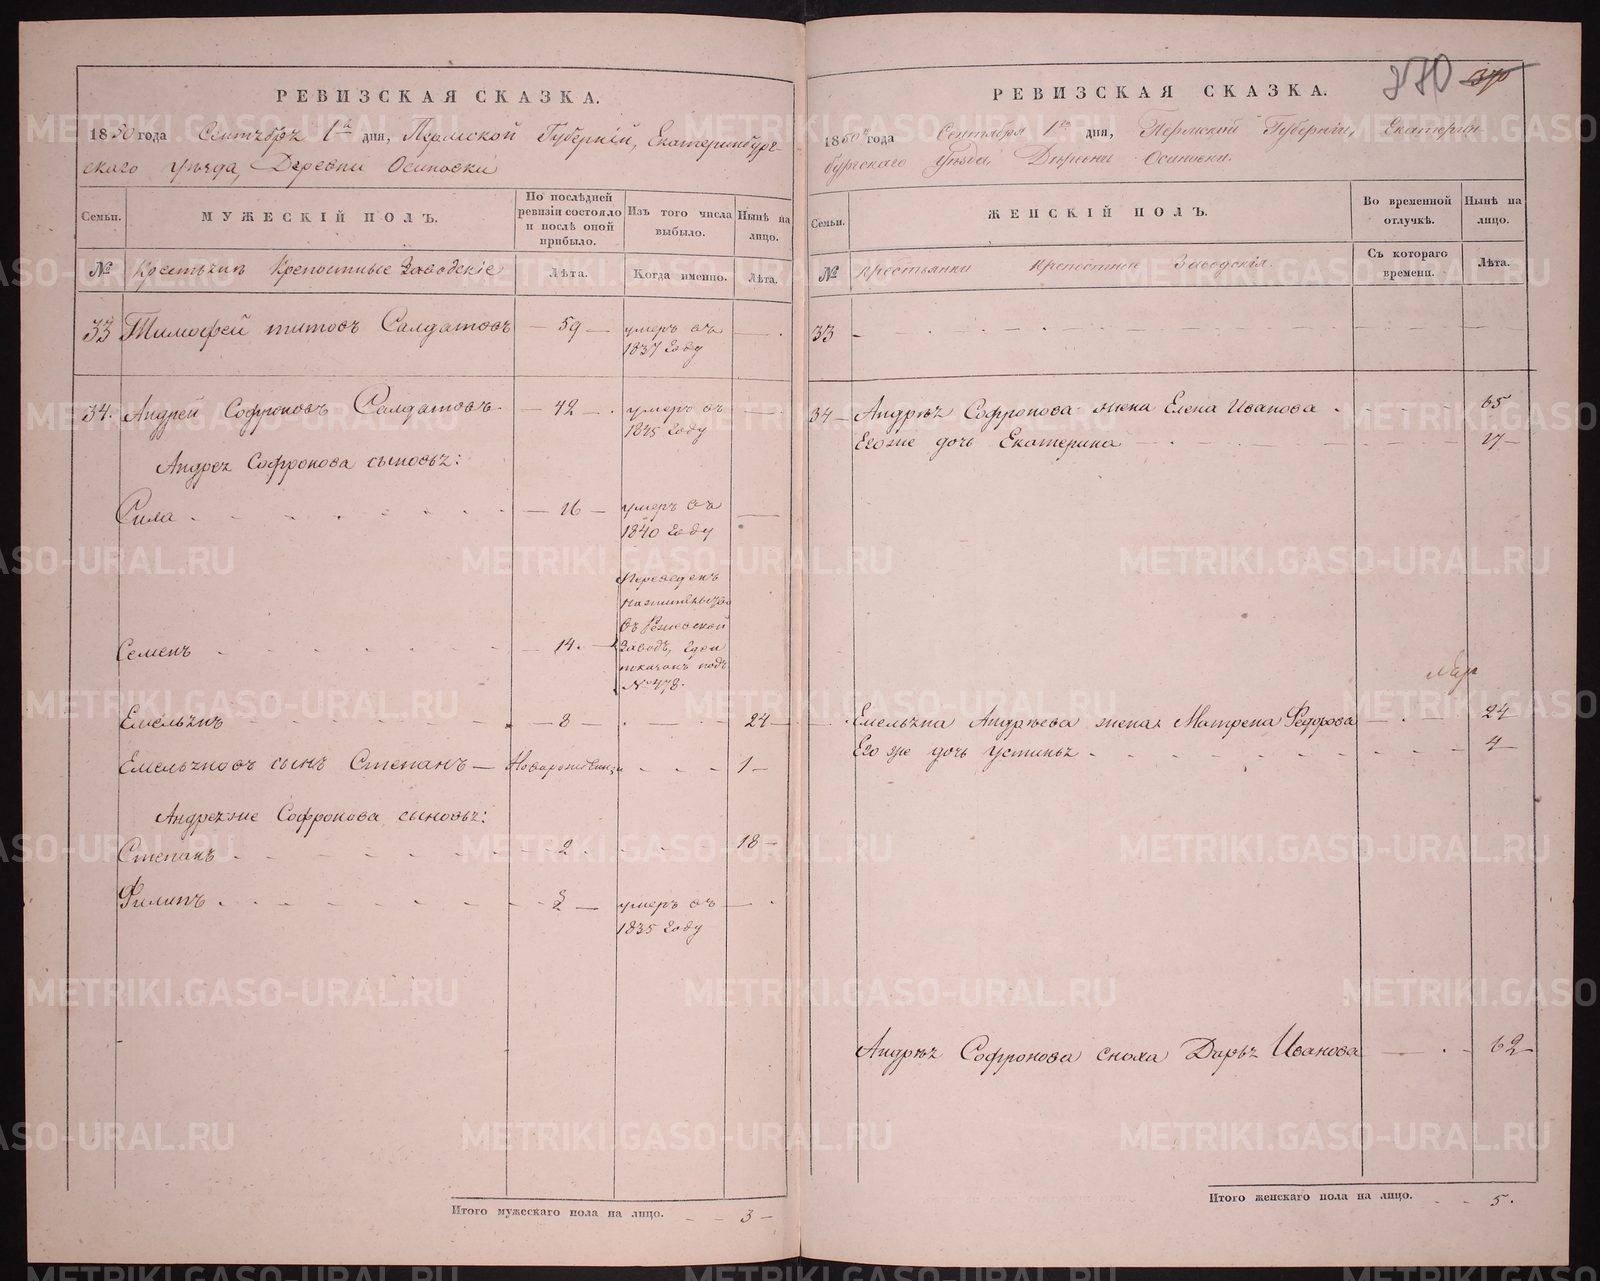 РЕВИЗСКАЯ СКАЗКА.
1850 года Сентября 1го дня, Пермской Губерніи, Екатеринбург-
скаго уѣзда, Деревни Осиновки
Семьи.
МУЖЕСКІЙ ПОЛЪ.
По послѣдней
ревизіи состояло
и послѣ оной
прибыло.
Изъ того числа
выбыло.
Нынѣ на
лицо.
№
Крестьяне Крепостные Заводскіе
Лѣта.
Когда именно.
Лѣта.
33 Тимофей Титовъ Салдатовъ — 59 — умеръ въ
1837 Году
34. Андрей Софроновъ Салдатовъ — 42 — умеръ въ
1845 Году
Андрея Софронова сыновья:
Сила — 16 — умеръ въ
1840 Году
Переведенъ
въ Режевской
Заводъ, Гдѣ и
Семенъ — 14.
показанъ подъ
№ 478.
Емельянъ — 8 — 24 —
Емельяновъ сынъ Степанъ — Новорожденъ 1 —
Андрея же Софронова сыновья:
Степанъ — 2 18 —
Филипъ — умеръ въ
1835 Году
Итого мужескаго пола на лицо. 3 —
370
370
РЕВИЗСКАЯ СКАЗКА.
1850 года Сентября 1го дня, Пермской Губерніи, Екатерин-
бургскаго Уѣзда, Деревни Осиновки.
Семьи.
ЖЕНСКІЙ ПОЛЪ.
Во временной
отлучкѣ.
Нынѣ на
лицо.
№
Крестьянки Крепостные Заводскія.
Съ котораго
времени.
Лѣта.
33
34 — Андрея Софронова жена Елена Иванова 65
Его же дочь Екатерина 17 —
Емельяна Андрѣева жена Матрена Федорова — 24
Его же дочь Устинья 4 —
Андрея Софронова сноха Дарья Иванова — 62 —
Итого женскаго пола на лицо. 5.
METRIKI.GASO-URAL.RU